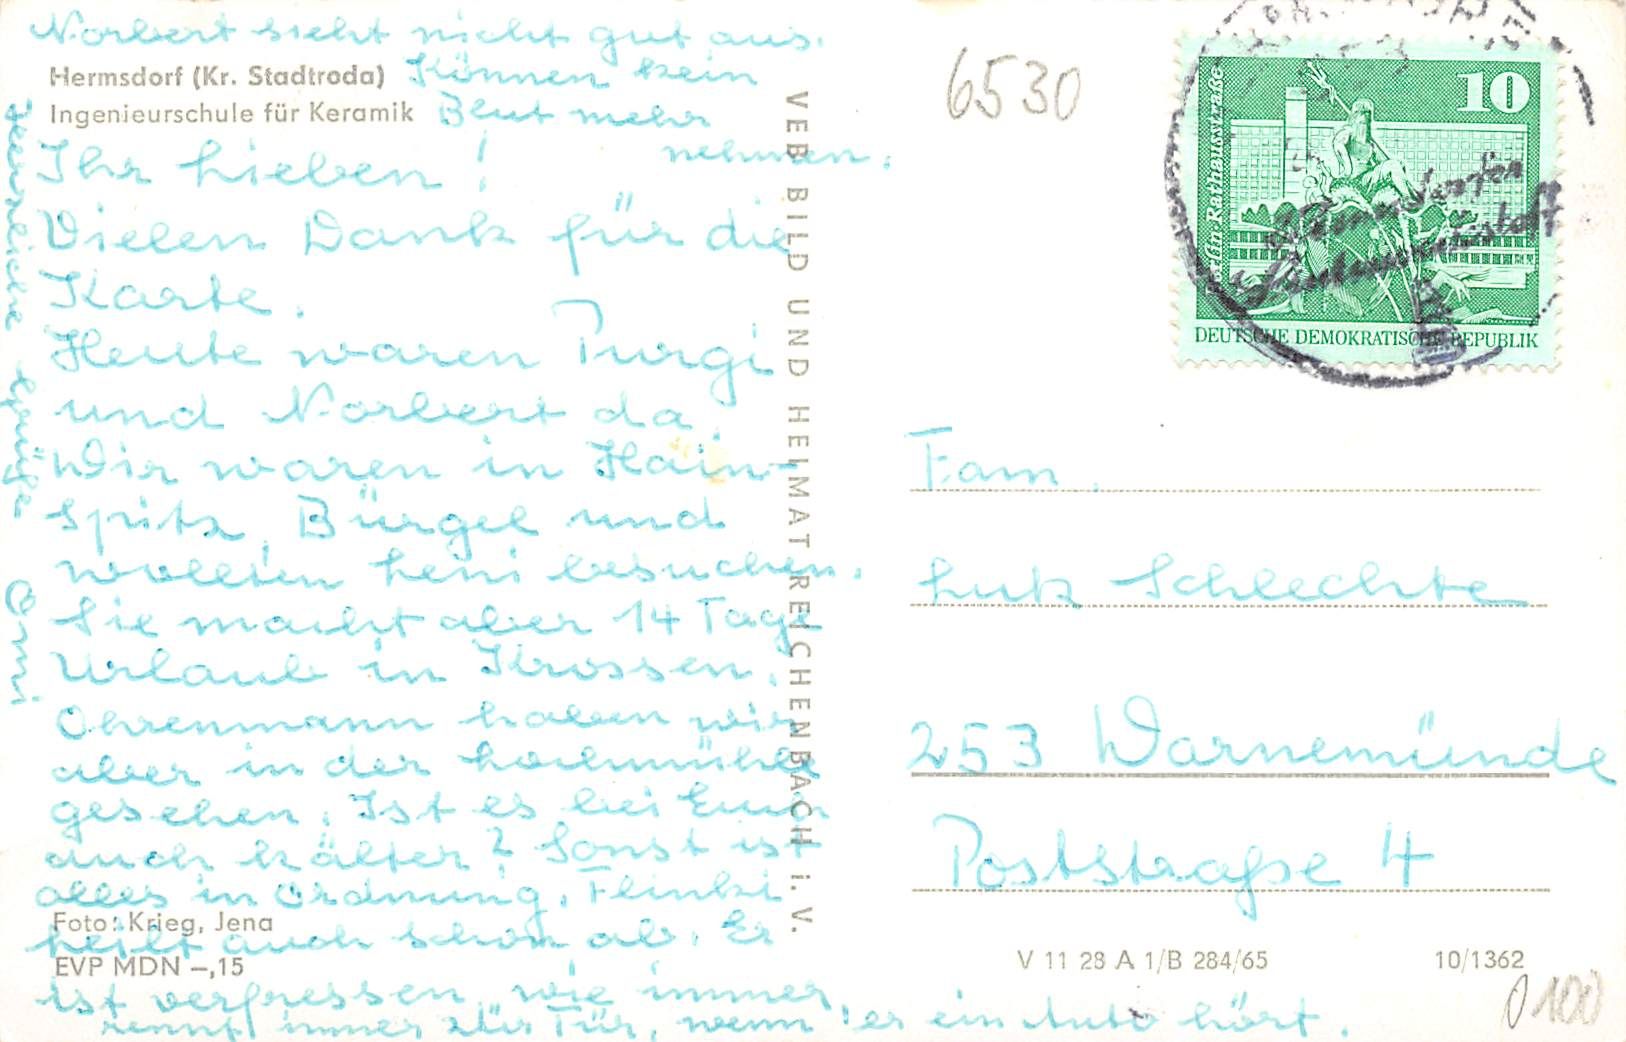 Norbert sieht nicht gut aus.
Hermsdorf (Kr. Stadtroda)
Können kein
Ingenieurschule für Keramik
Blut mehr
nehmen.
Ihr Lieben!
Vielen Dank für die
Karte.
Heute waren Purgi
und Norbert da.
Wir waren in Hain-
spitz, Bürgel und
wollten Leni besuchen.
Sie macht aber 14 Tage
Urlaub in Krossen.
Ohrenmann haben wir
aber in der
gesehen. Ist es bei Euch
auch kälter? Sonst ist
alles in Ordnung. Flinki
heilt auch schon ab. Er
ist verfressen wie immer,
rennt immer zur Tür, wenn er ein Auto hört.
Herzliche Grüße
Omi
Foto: Krieg, Jena
EVP MDN –,15
VEB BILD UND HEIMAT REICHENBACH i. V.
6530
10
Berlin-Rathausstraße
DEUTSCHE DEMOKRATISCHE REPUBLIK
Fam.
Lutz Schlechte
253 Warnemünde
Poststraße 4
V 11 28 A 1/B 284/65
10/1362
0100